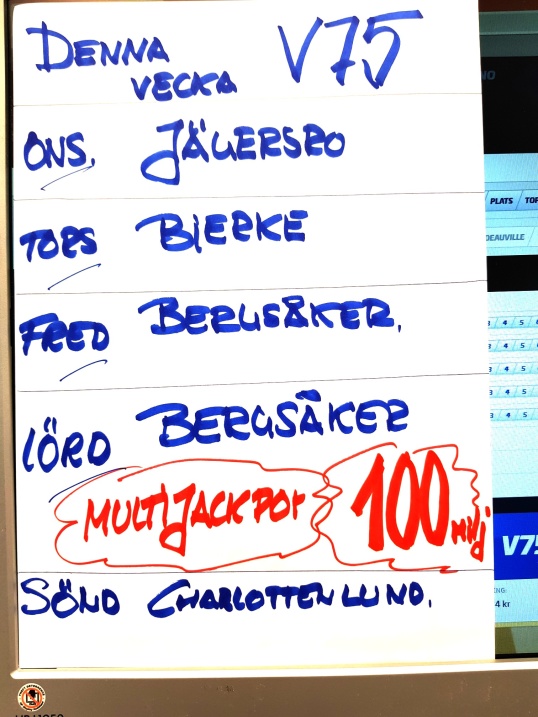 DENNA V75
VECKA
ONS. JÄGERSRO
TORS BJERKE
FRED BERGSÅKER.
LÖRD BERGSÅKER
MULTIJACKPOT 100 milj
SÖND CHARLOTTENLUND.
PLATS TOP
DEAUVILLE
3 4 5
3 4 5 6
3 4 5 6
3 4 5 6
3 4 5 6
V75
4 kr